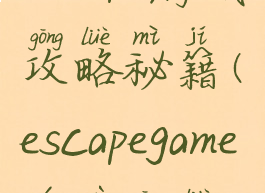 gōng lüè mì jí
攻略秘籍(
escapegame